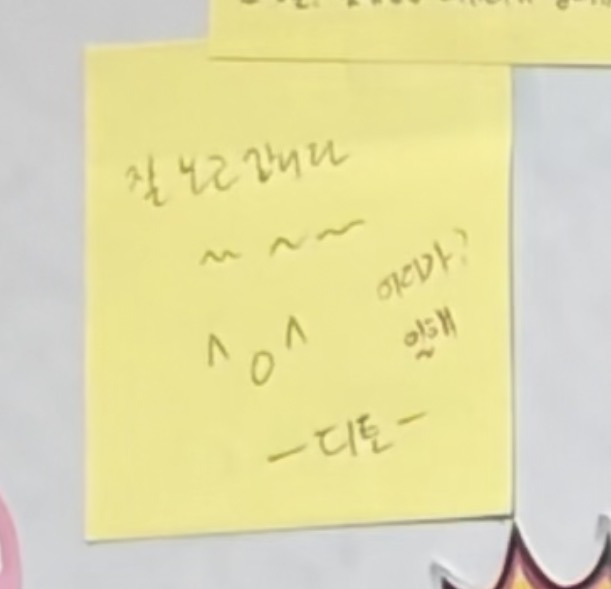 잘 놀고 갑니다
~ ~ ~
^o^
어디가?
일해
-디토-